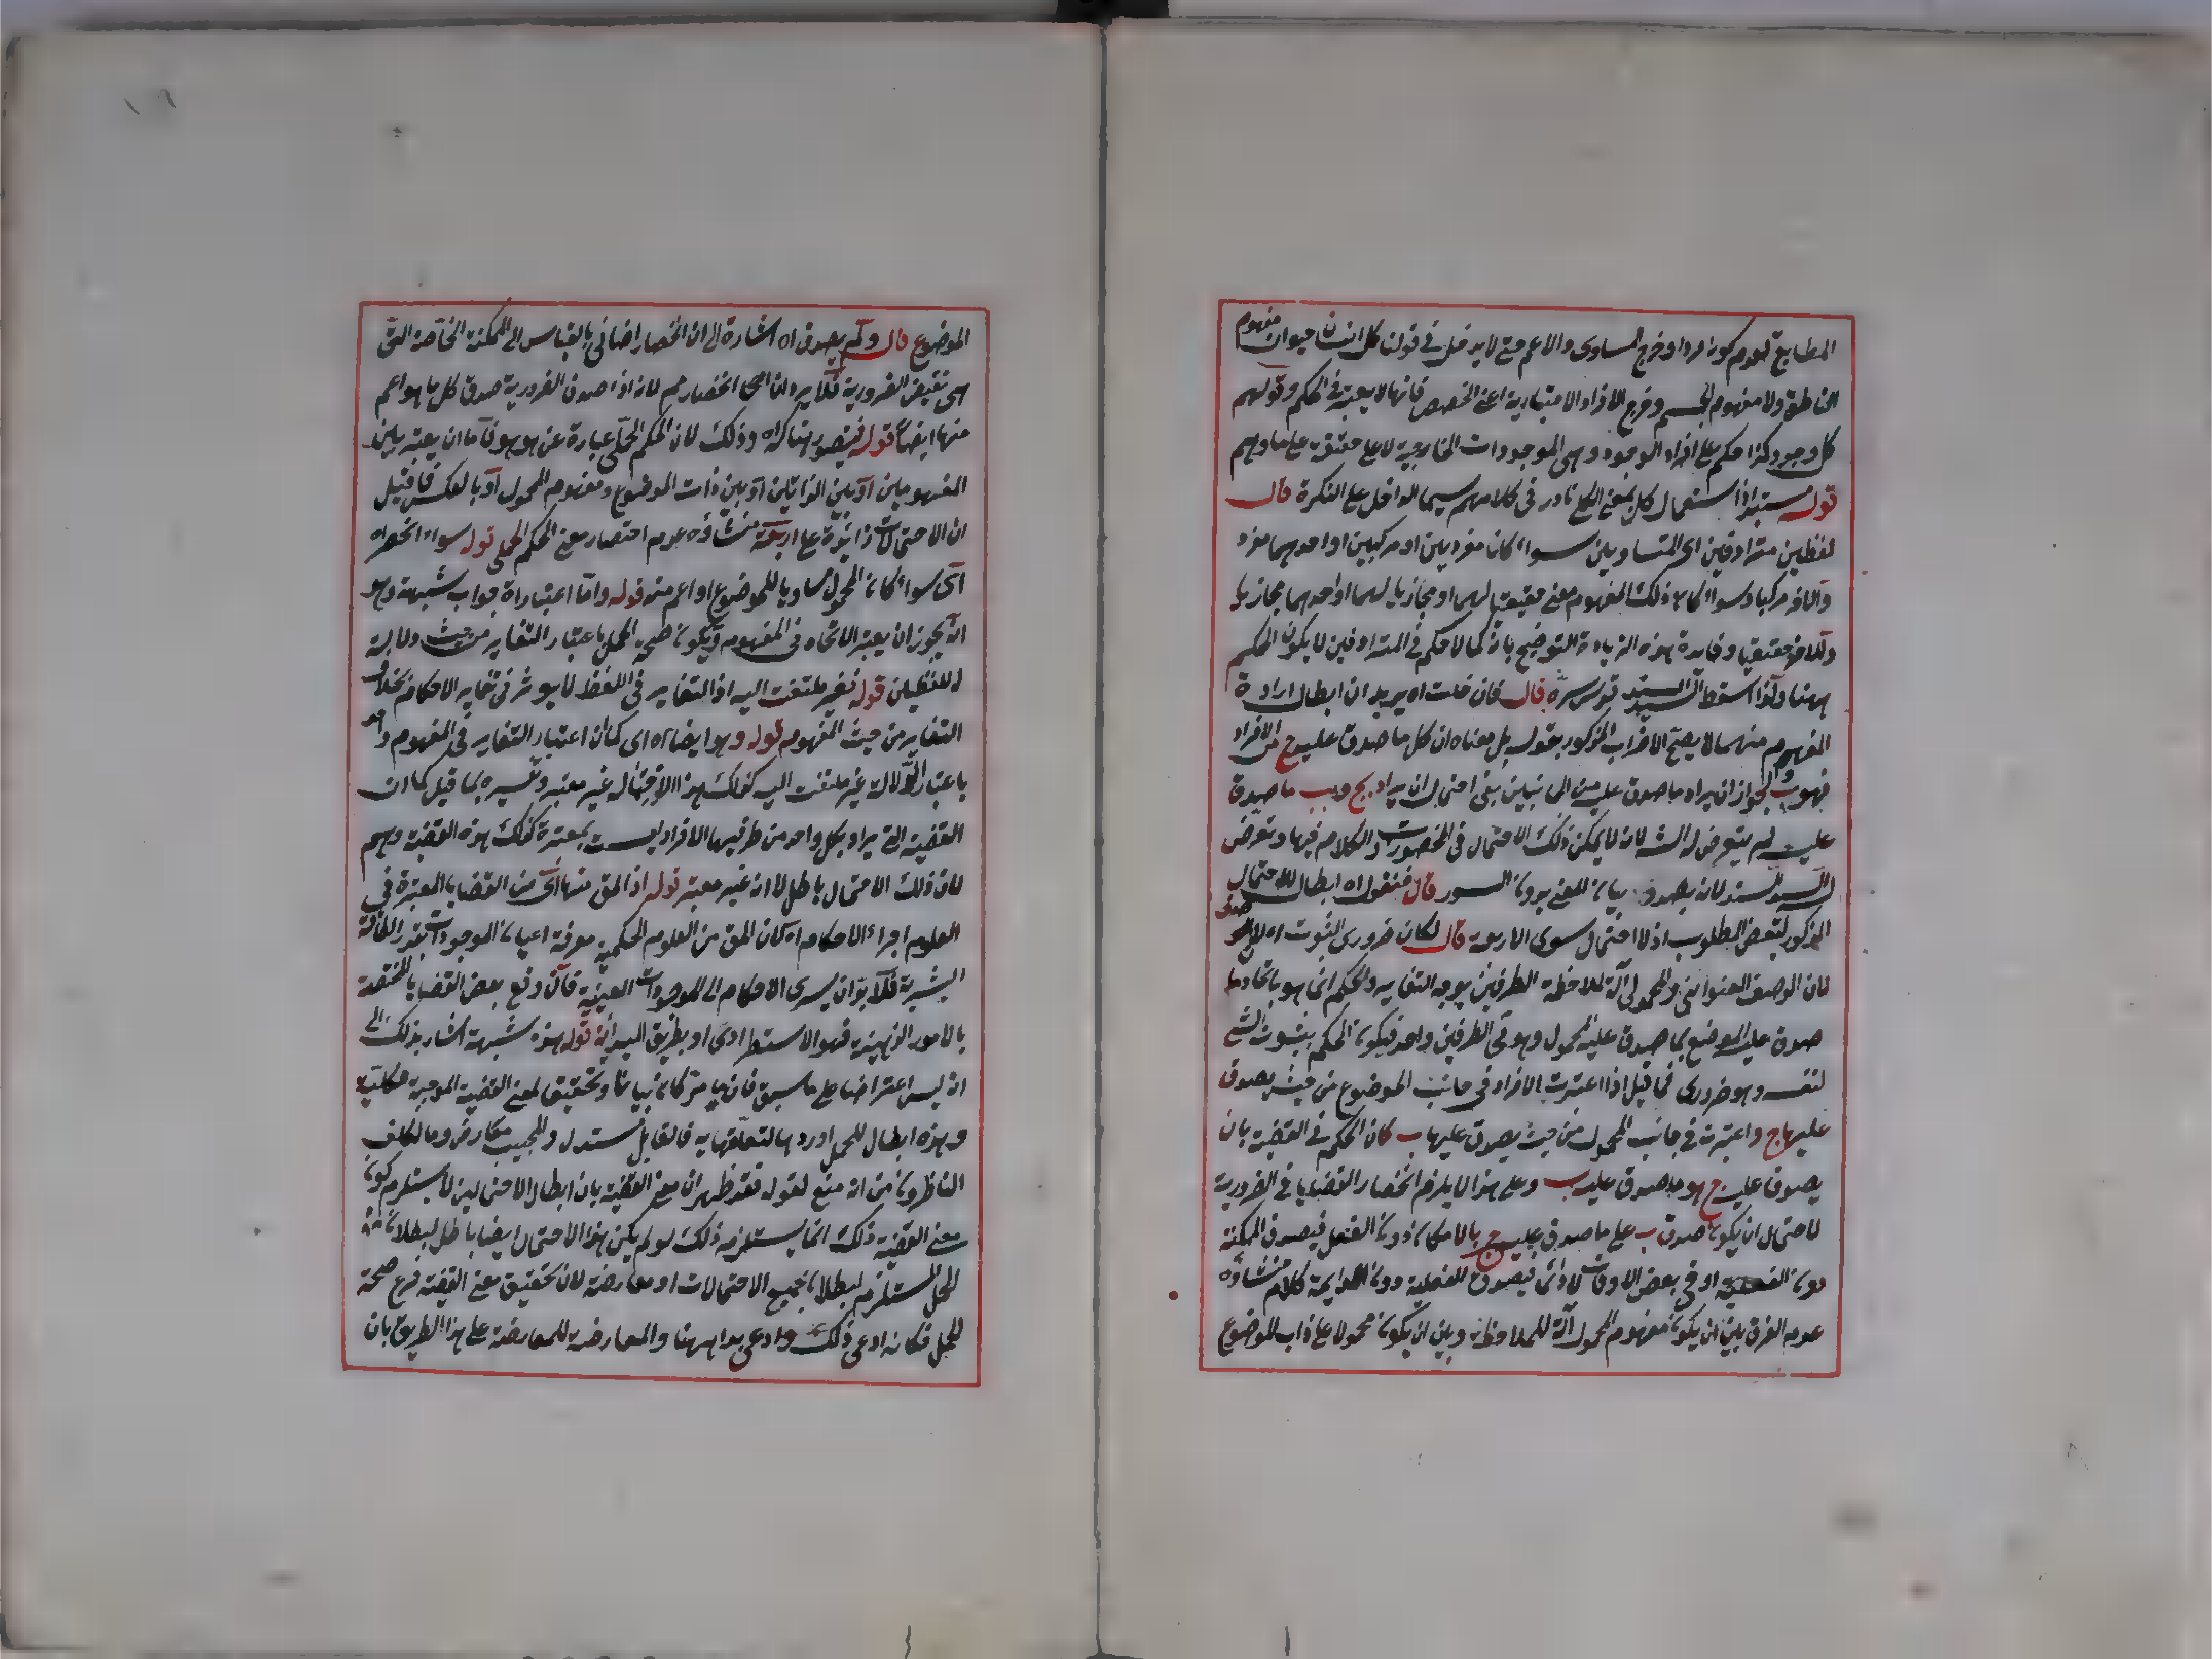 المطابع لعدم كونه فردا وخرج المساوى والاعم حتى لا يدخل فى قولنا كل انسان حيوان مفهوم
الناطق ولا مفهوم الجسم وخرج الافراد الاعتبارية اعنى الحصص فانها لا يعتبر فى الحكم وقولهم
كل وجود كذا حكم على افراد الوجود وهى الموجودات الخارجية لا على حقيقة على ما وهم
قوله مستبد اذا استعمال كل بمعنى الكلى نادر فى كلامهم سيما الداخل على النكرة قال
لفظين مترادفين اى المتساويين سواء كان مفردين او مركبين او احدهما مفرد
والآخر مركبا وسواء كان ذلك المفهوم معنى حقيقيا لهما او مجازيا لهما او احدهما مجازيا
وللآخر حقيقيا وفايدة هذه الزيادة التوضيح بانه كما لا حكم فى المترادفين لا يكون الحكم
ههنا ولذا اسقط السيد قدس سره قال فان قلت اه يريد ان ابطال ارادة
المفهوم منهما لا يصح الاضراب المذكور بقوله بل معناه ان كل ما صدق عليه ج من الافراد
فهو ب لجواز ان يراد ما صدق عليه من الجانبين بقى احتمال ان يراد بج وبب ما صدق
عليه لم يتعرض له الش لانه لا يمكن ذلك الاحتمال فى المحصورات والكلام فيها وتعرض
له السيد السند لانه بصدد بيان المعنى بدون السور قال فنقول اه ابطال للاحتمال
المذكور لبعض المطلوب اذ لا احتمال سوى الاربعة قال لكان ضرورى الثبوت اه
لان الوصف العنوانى والمحمولى آلة لملاحظة الطرفين بوجه التغاير والحكم انما هو باتحاد ما
صدق عليه الموضوع بما صدق عليه المحمول وهو فى الطرفين واحد فيكون الحكم بثبوت الشئ
لنفسه وهو ضرورى فما قيل اذا اعتبرت الافراد فى جانب الموضوع من حيث يصدق
عليها ج واعتبرت فى جانب المحمول من حيث يصدق عليها ب كان الحكم فى القضية بان
يصدق عليه ج هو ما صدق عليه ب وعلى هذا لا يلزم انحصار القضايا فى الضرورية
لاحتمال ان يكون صدق ب على ما صدق عليه ج بالامكان دون الفعل فيصدق الممكنة
دون الفعلية او فى بعض الاوقات لا دائما فيصدق الفعلية دون الدايمة كلام منشاؤه
عدم الفرق بين ان يكون مفهوم المحمول آلة للملاحظة وبين ان يكون محمولا على ذات الموضوع
الموضوع قال ولم يصدق اه اشارة الى ان انحصار اضافى بالقياس الى الممكنة الخاصة التى
هى نقيض الضرورية فلا يرد ان الانحصار مم لانه اذا صدق الضرورية صدق كل ما هو اعم
منها ايضا قوله فيتصور هناك اه وذلك لان الحكم الحملى عبارة عن هو هو فاما ان يعتبر بين
المفهومين او بين الذاتين او بين ذات الموضوع ومفهوم المحمول او بالعكس فما قيل
ان الاحتمالات زائدة على اربعة منشاؤه عدم احتصار معنى الحكم الحملى قوله سواء انحصر اه
اى سواء كان المحمول مساويا للموضوع او اعم منه قوله واما اعتبار اه جواب شبهة وهو
انه يجوز ان يعتبر الاتحاد فى المفهوم ويكون صحة الحمل باعتبار التغاير من حيث دلالة
اللفظين قوله فغير ملتفت اليه اذ التغاير فى اللفظ لا يوثر فى تغاير الاحكام بخلاف
التغاير من حيث المفهوم قوله وهو ايضا اه اى كما ان اعتبار التغاير فى المفهوم واحد
باعتبار الدلالة غير ملتفت اليه كذلك هذا الاحتمال غير معتبر وتفسيره بما قيل كما ان
القضية التى يراد بكل واحد من طرفيها الافراد ليست بمعتبرة كذلك هذه القضية وهم
لان ذلك الاحتمال باطل لا انه غير معتبر قوله اذ المق منها اى من القضايا المعتبرة فى
العلوم اجراء الاحكام اه كان المق من العلوم الحكمية معرفة اعيان الموجودات بقدر الطاقة
البشرية فلا بد ان يسرى الاحكام الى الموجودات العينية فان وقع بعض القضايا المختصة
بالامور الذهنية فهو الاستطرادى او بطريق المبدأية قوله هذه شبهة اشار بذلك الى
انه ليس اعتراضا على ما سبق فان ما مر كان بيانا وتحقيقا لمعنى القضية الموجبة الكلية
وهذه ابطال للحمل اوردها لتعلقها به فالقائل مستدل والمجيب معارض وما تكلف
الناظرون من انه منع لقوله فقد ظهر ان معنى القضية بان ابطال الاحتمالين لا يستلزم كون
معنى القضية ذلك انما يستلزم ذلك لو لم يكن هذا الاحتمال ايضا باطل لبطلان
الحمل المستلزم لبطلان جميع الاحتمالات او معارضة لان تحقيق معنى القضية فرع صحة
الحمل فكانه ادعى ذلك وادعى بداهتها والمعارضة للمعارضة على هذا الطريق بان